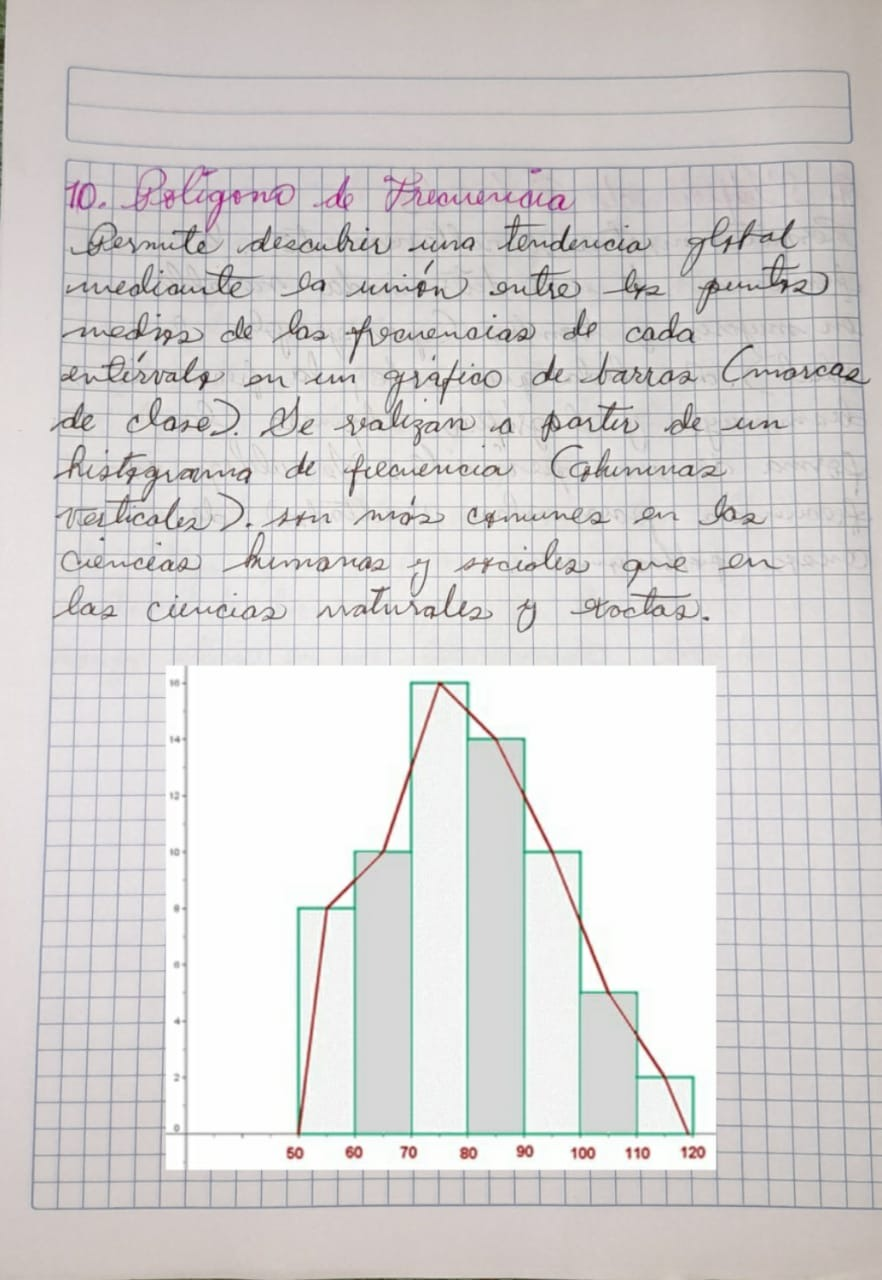 10. Polígono de Frecuencia
Permite descubrir una tendencia global
mediante la unión entre los puntos
medios de las frecuencias de cada
intérvalo en un gráfico de barras (marcas
de clase). Se realizan a partir de un
histograma de frecuencia (Columnas
verticales). son más comunes en las
ciencias humanas y sociales que en
las ciencias naturales y exactas.
16
14
12
10
8
6
4
2
0
50 60 70 80 90 100 110 120